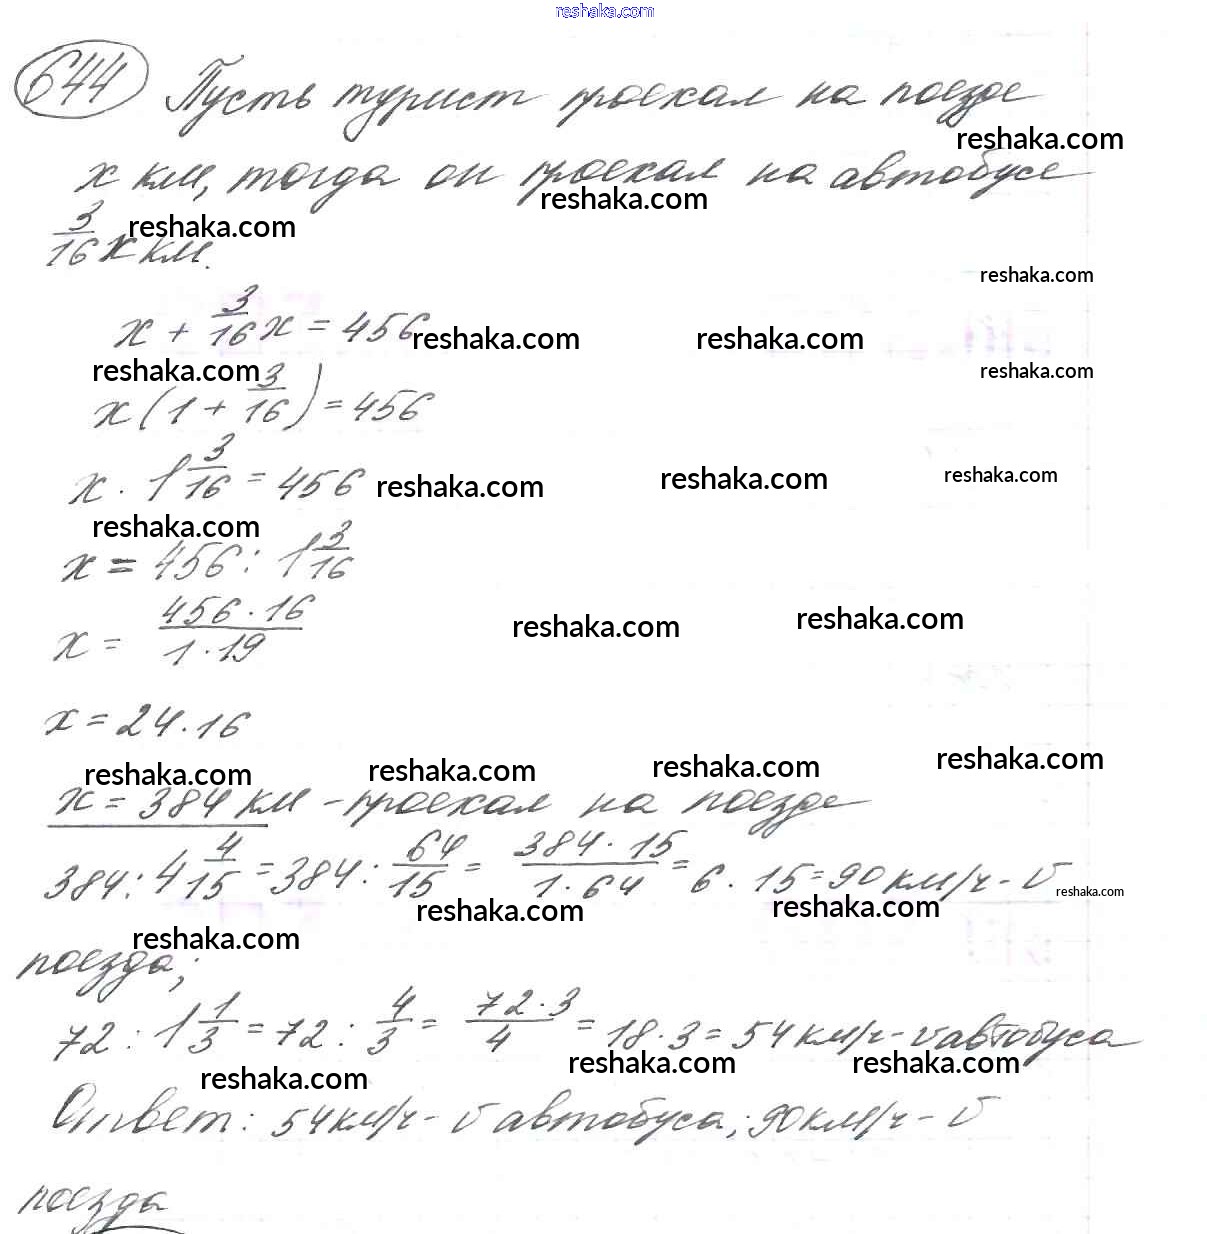 reshaka.com
644 Пусть турист проехал на поезде
reshaka.com
х км, тогда он проехал на автобусе
reshaka.com
reshaka.com
3/16 х км.
reshaka.com
х + 3/16 х = 456
reshaka.com reshaka.com
reshaka.com reshaka.com
х (1 + 3/16) = 456
х · 1 3/16 = 456
reshaka.com reshaka.com reshaka.com
reshaka.com
х = 456 : 1 3/16
х = 456 · 16 / 1 · 19
reshaka.com reshaka.com
х = 24 · 16
reshaka.com reshaka.com reshaka.com reshaka.com
х = 384 км – проехал на поезде
384 : 4 4/15 = 384 : 64/15 = 384 · 15 / 1 · 64 = 6 · 15 = 90 км/ч – v
reshaka.com
reshaka.com reshaka.com
reshaka.com
поезда;
72 : 1 1/3 = 72 : 4/3 = 72 · 3 / 4 = 18 · 3 = 54 км/ч – v автобуса
reshaka.com reshaka.com reshaka.com
Ответ: 54 км/ч – v автобуса; 90 км/ч – v
поезда